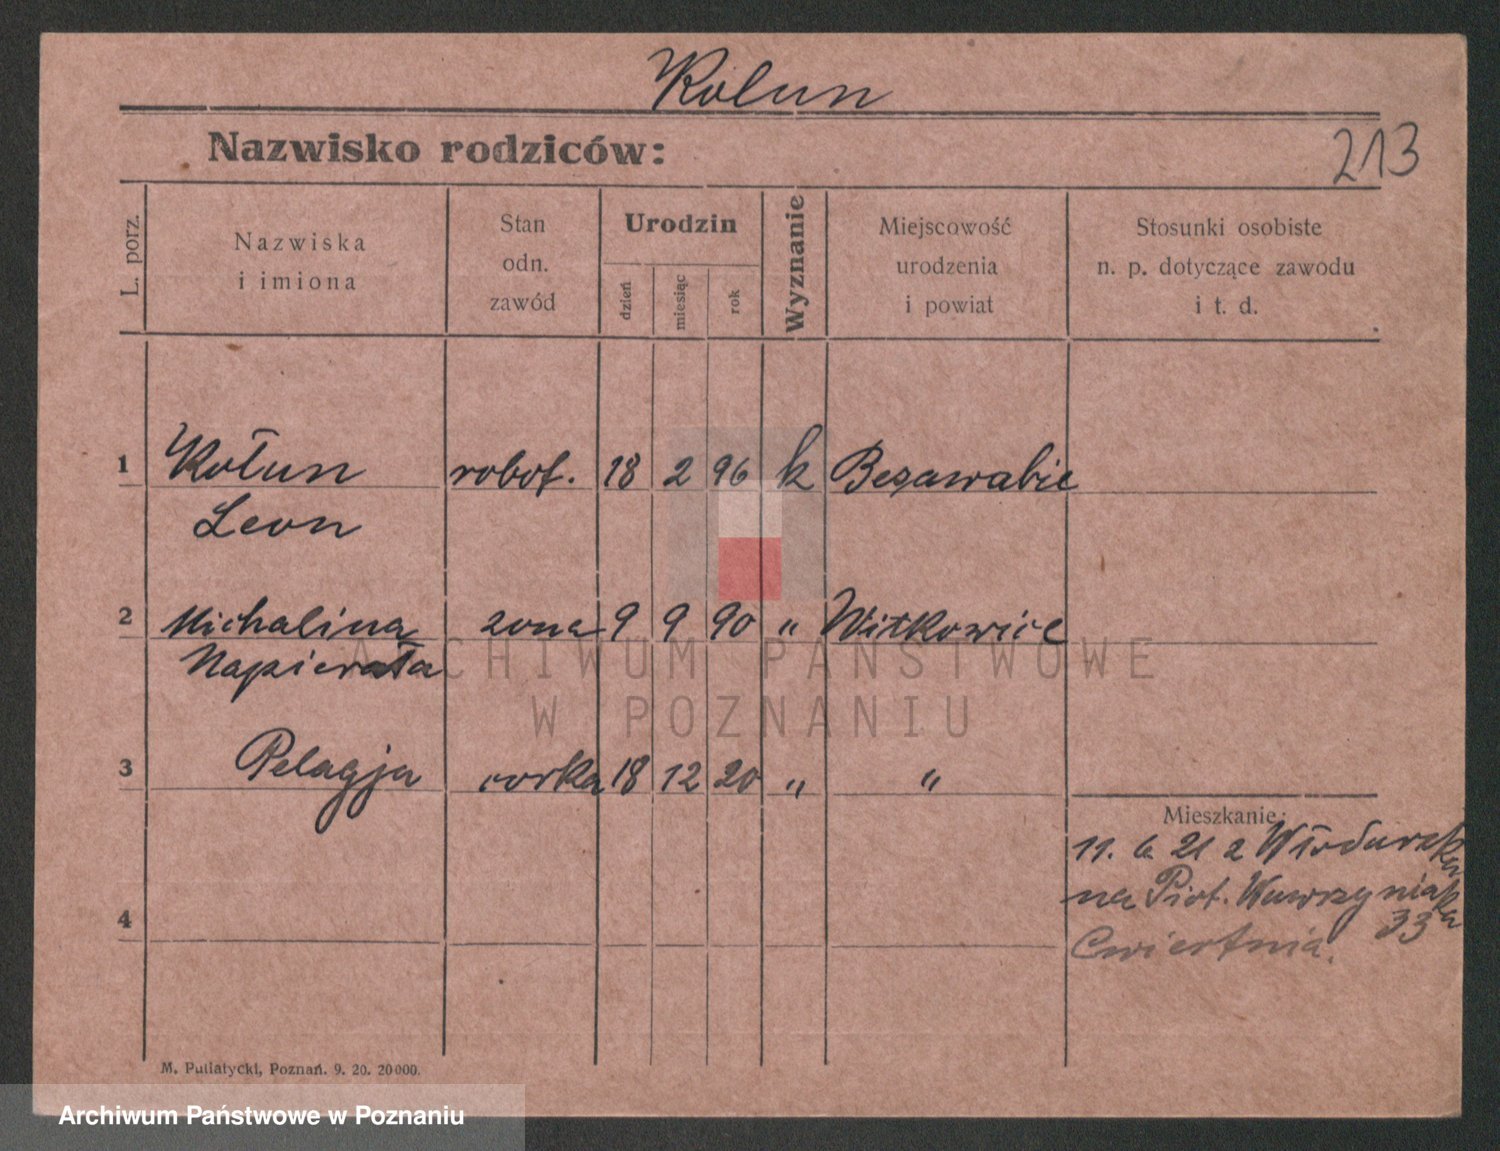 Kolun
Nazwisko rodziców:
213
L. porz.
Nazwiska
i imiona
Stan
odn.
zawód
Urodzin
dzień
miesiąc
rok
Wyznanie
Miejscowość
urodzenia
i powiat
Stosunki osobiste
n. p. dotyczące zawodu
i t. d.
1 Kołun robot. 18 2 96 k Besarabie
Leon
2 Michalina zona 9 9 90 " Witkowice
Napierała
3 Pelagja corka 18 12 20 " "
Mieszkanie:
11. 6 21 z
na Piot. Wawrzyniaka
33
4
Cwiertnia.
M. Putiatycki, Poznań. 9. 20. 20000.
ARCHIWUM PAŃSTWOWE
W POZNANIU
Archiwum Państwowe w Poznaniu